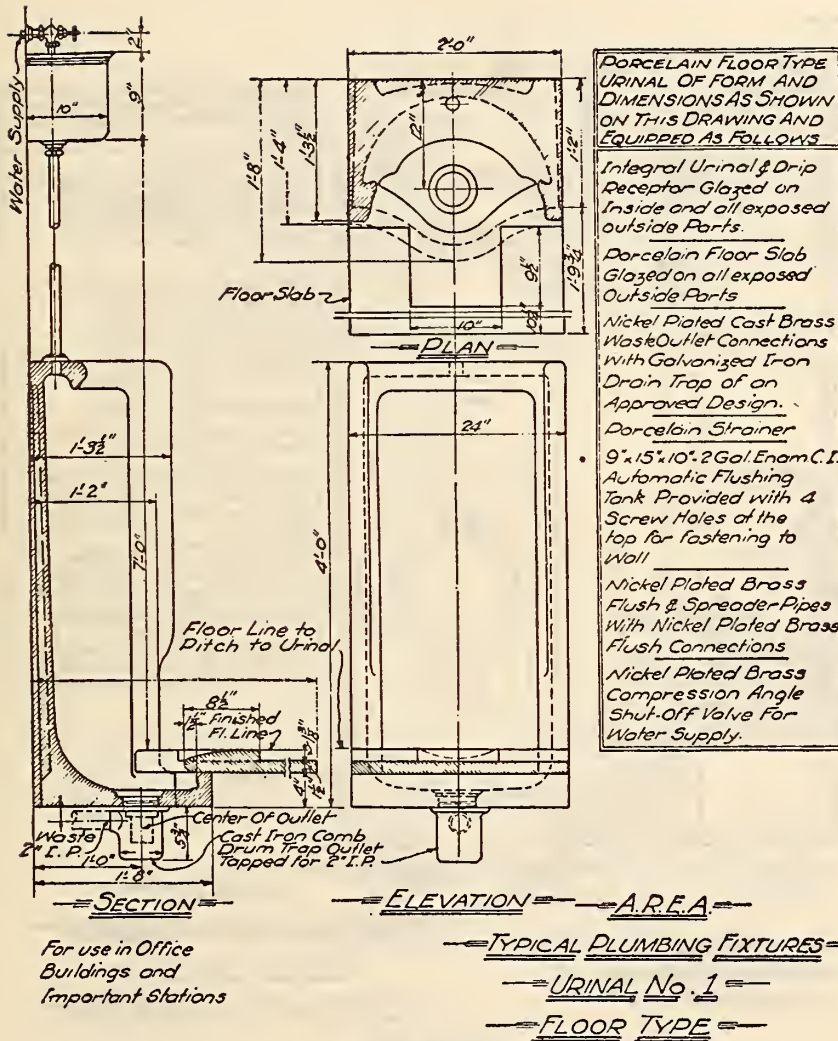 Water Supply
2"
10"
9"
1'-3½"
1'-2"
7'-0"
Floor Line to
Pitch to Urinal
8½"
1½"
Finished
Fl. Line
4"
Waste
2" I.P.
Center Of Outlet
Cast Iron Comb
Drum Trap Outlet
Tapped for 2" I.P.
1'-0"
1'-8"
SECTION
For use in Office
Buildings and
Important Stations
2'-0"
1'-8"
1'-4"
1'-3½"
12"
1'-2"
1'-9¾"
9½"
10"
Floor Slab
PLAN
24"
4'-0"
ELEVATION
PORCELAIN FLOOR TYPE
URINAL OF FORM AND
DIMENSIONS AS SHOWN
ON THIS DRAWING AND
EQUIPPED AS FOLLOWS
Integral Urinal & Drip
Receptor Glazed on
Inside and all exposed
outside Parts.
Porcelain Floor Slab
Glazed on all exposed
Outside Parts
Nickel Plated Cast Brass
Waste Outlet Connections
With Galvanized Iron
Drain Trap of an
Approved Design.
Porcelain Strainer
9"x15"x10"-2 Gal. Enam. C.I.
Automatic Flushing
Tank Provided with 4
Screw Holes at the
top for fastening to
Wall
Nickel Plated Brass
Flush & Spreader Pipes
With Nickel Plated Brass
Flush Connections
Nickel Plated Brass
Compression Angle
Shut-Off Valve For
Water Supply.
A.R.E.A.
TYPICAL PLUMBING FIXTURES
URINAL No. 1
FLOOR TYPE